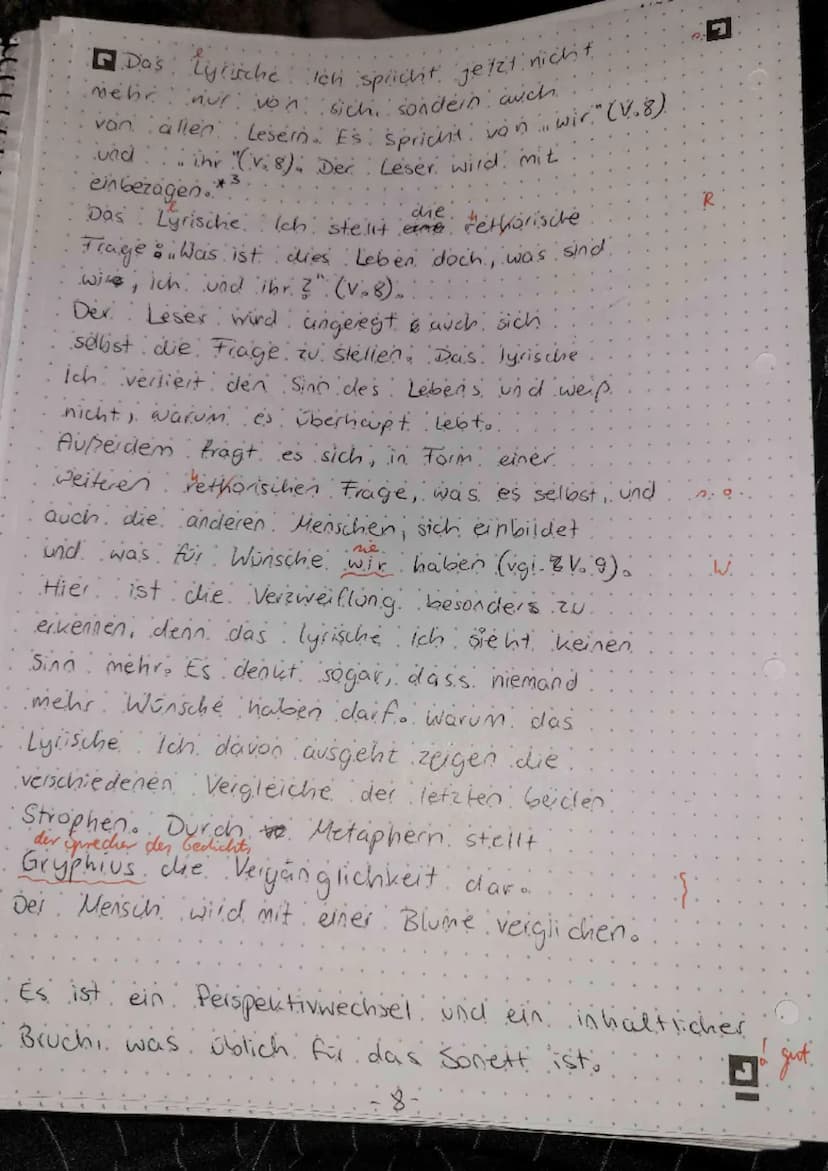 Das Lyrische Ich spricht jetzt nicht
mehr nur von sich, sondern auch
von allen Lesern. Es spricht von „wir" (V.8)
und „ihr" (V.8). Der Leser wird mit
einbezogen.*3
Das Lyrische Ich stellt die rethorische R
Frage: „Was ist dies Leben doch, was sind
wir, ich und ihr?" (V.8).
Der Leser wird angeregt auch sich
selbst die Frage zu stellen. Das lyrische
Ich verliert den Sinn des Lebens und weiß
nicht, warum es überhaupt lebt.
Außerdem fragt es sich, in Form einer
weiteren rethorischen Frage, was es selbst, und
auch die anderen Menschen, sich einbildet
sie
und was für Wünsche wir haben (vgl. V.9). W
Hier ist die Verzweiflung besonders zu
erkennen, denn das lyrische ich sieht keinen
Sinn mehr. Es denkt sogar, dass niemand
mehr Wünsche haben darf. Warum das
Lyrische Ich davon ausgeht zeigen die
verschiedenen Vergleiche der letzten beiden
Strophen. Durch Metaphern stellt
der Sprecher des Gedichts
Gryphius die Vergänglichkeit dar.
Der Mensch wird mit einer Blume verglichen.
Es ist ein Perspektivwechsel und ein inhaltlicher
Bruch, was üblich für das Sonett ist. ! gut
- 8 -